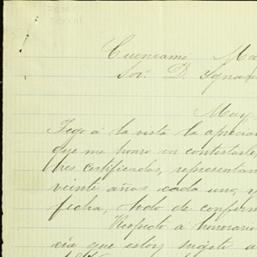 Cuencamé, Ma
Sor. D. Ignac
Muy
Tego á la vista la aprecia
que me hace en contestado,
tres certificados, representan
veinte años cada uno, y
fecha, todo de conform
Respecto a honorario
cia que estoy sujeto a